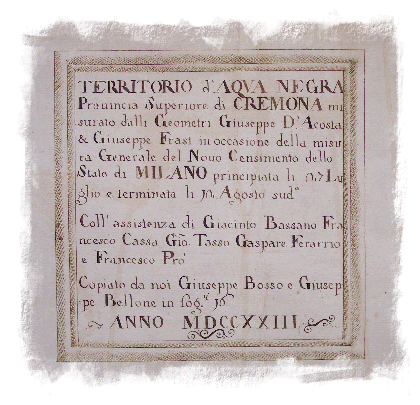 TERRITORIO d'AQVA NEGRA
Prouincia Superiore di CREMONA mi
surato dalli Geometri Giuseppe D'Acosta
& Giuseppe Frasi in occasione della misu
ra Generale del Nouo Censimento dello
Stato di MILANO principiata li Lu
glio e terminata li Agosto sud.º
Coll' assistenza di Giacinto Bassano Fra
ncesco Cassa Gio. Tasso Gaspare Ferarrio
e Francesco Prò
Copiato da noi Giuseppe Bosso e Giusep
pe Bellone in fog.
ANNO MDCCXXIII